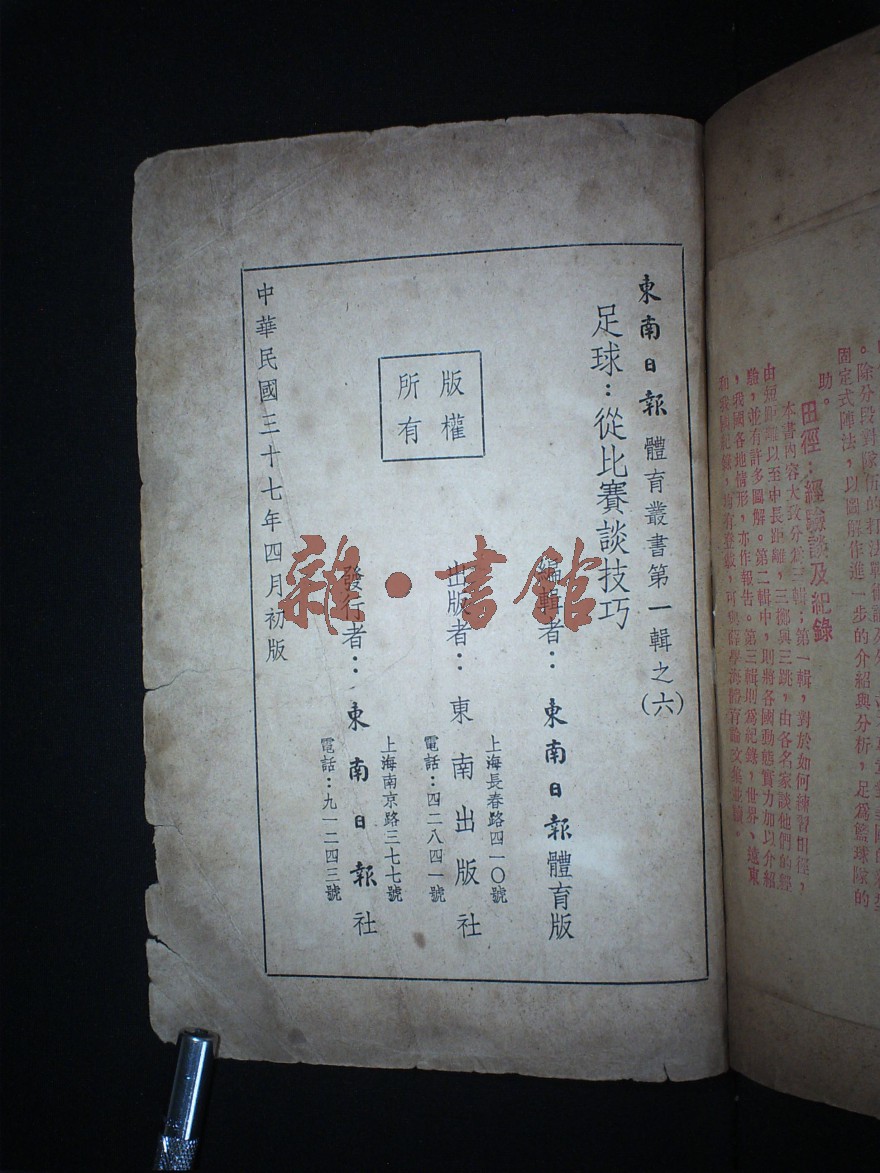 東南日報體育叢書第一輯之(六)
足球：從比賽談技巧
編輯者：東南日報體育版
上海長春路四一〇號
出版者：東南出版社
電話：四二八四一號
上海南京路三七七號
發行者：東南日報社
電話：九一二四三號
版權
所有
中華民國三十七年四月初版
雜·書館
固定式陣法，以圖解作進一步的介紹與分析，足為籃球隊的
助。
田徑：經驗談及紀錄
本書內容大致分為三輯；第一輯，對於如何練習田徑，
由短距離以至中長距離，三擲與三跳，由各名家談他們的經
驗，並有許多圖解。第二輯中，則將各國動態實力加以介紹
，我國各地情形，亦作報告。第三輯則為紀錄，世界、遠東